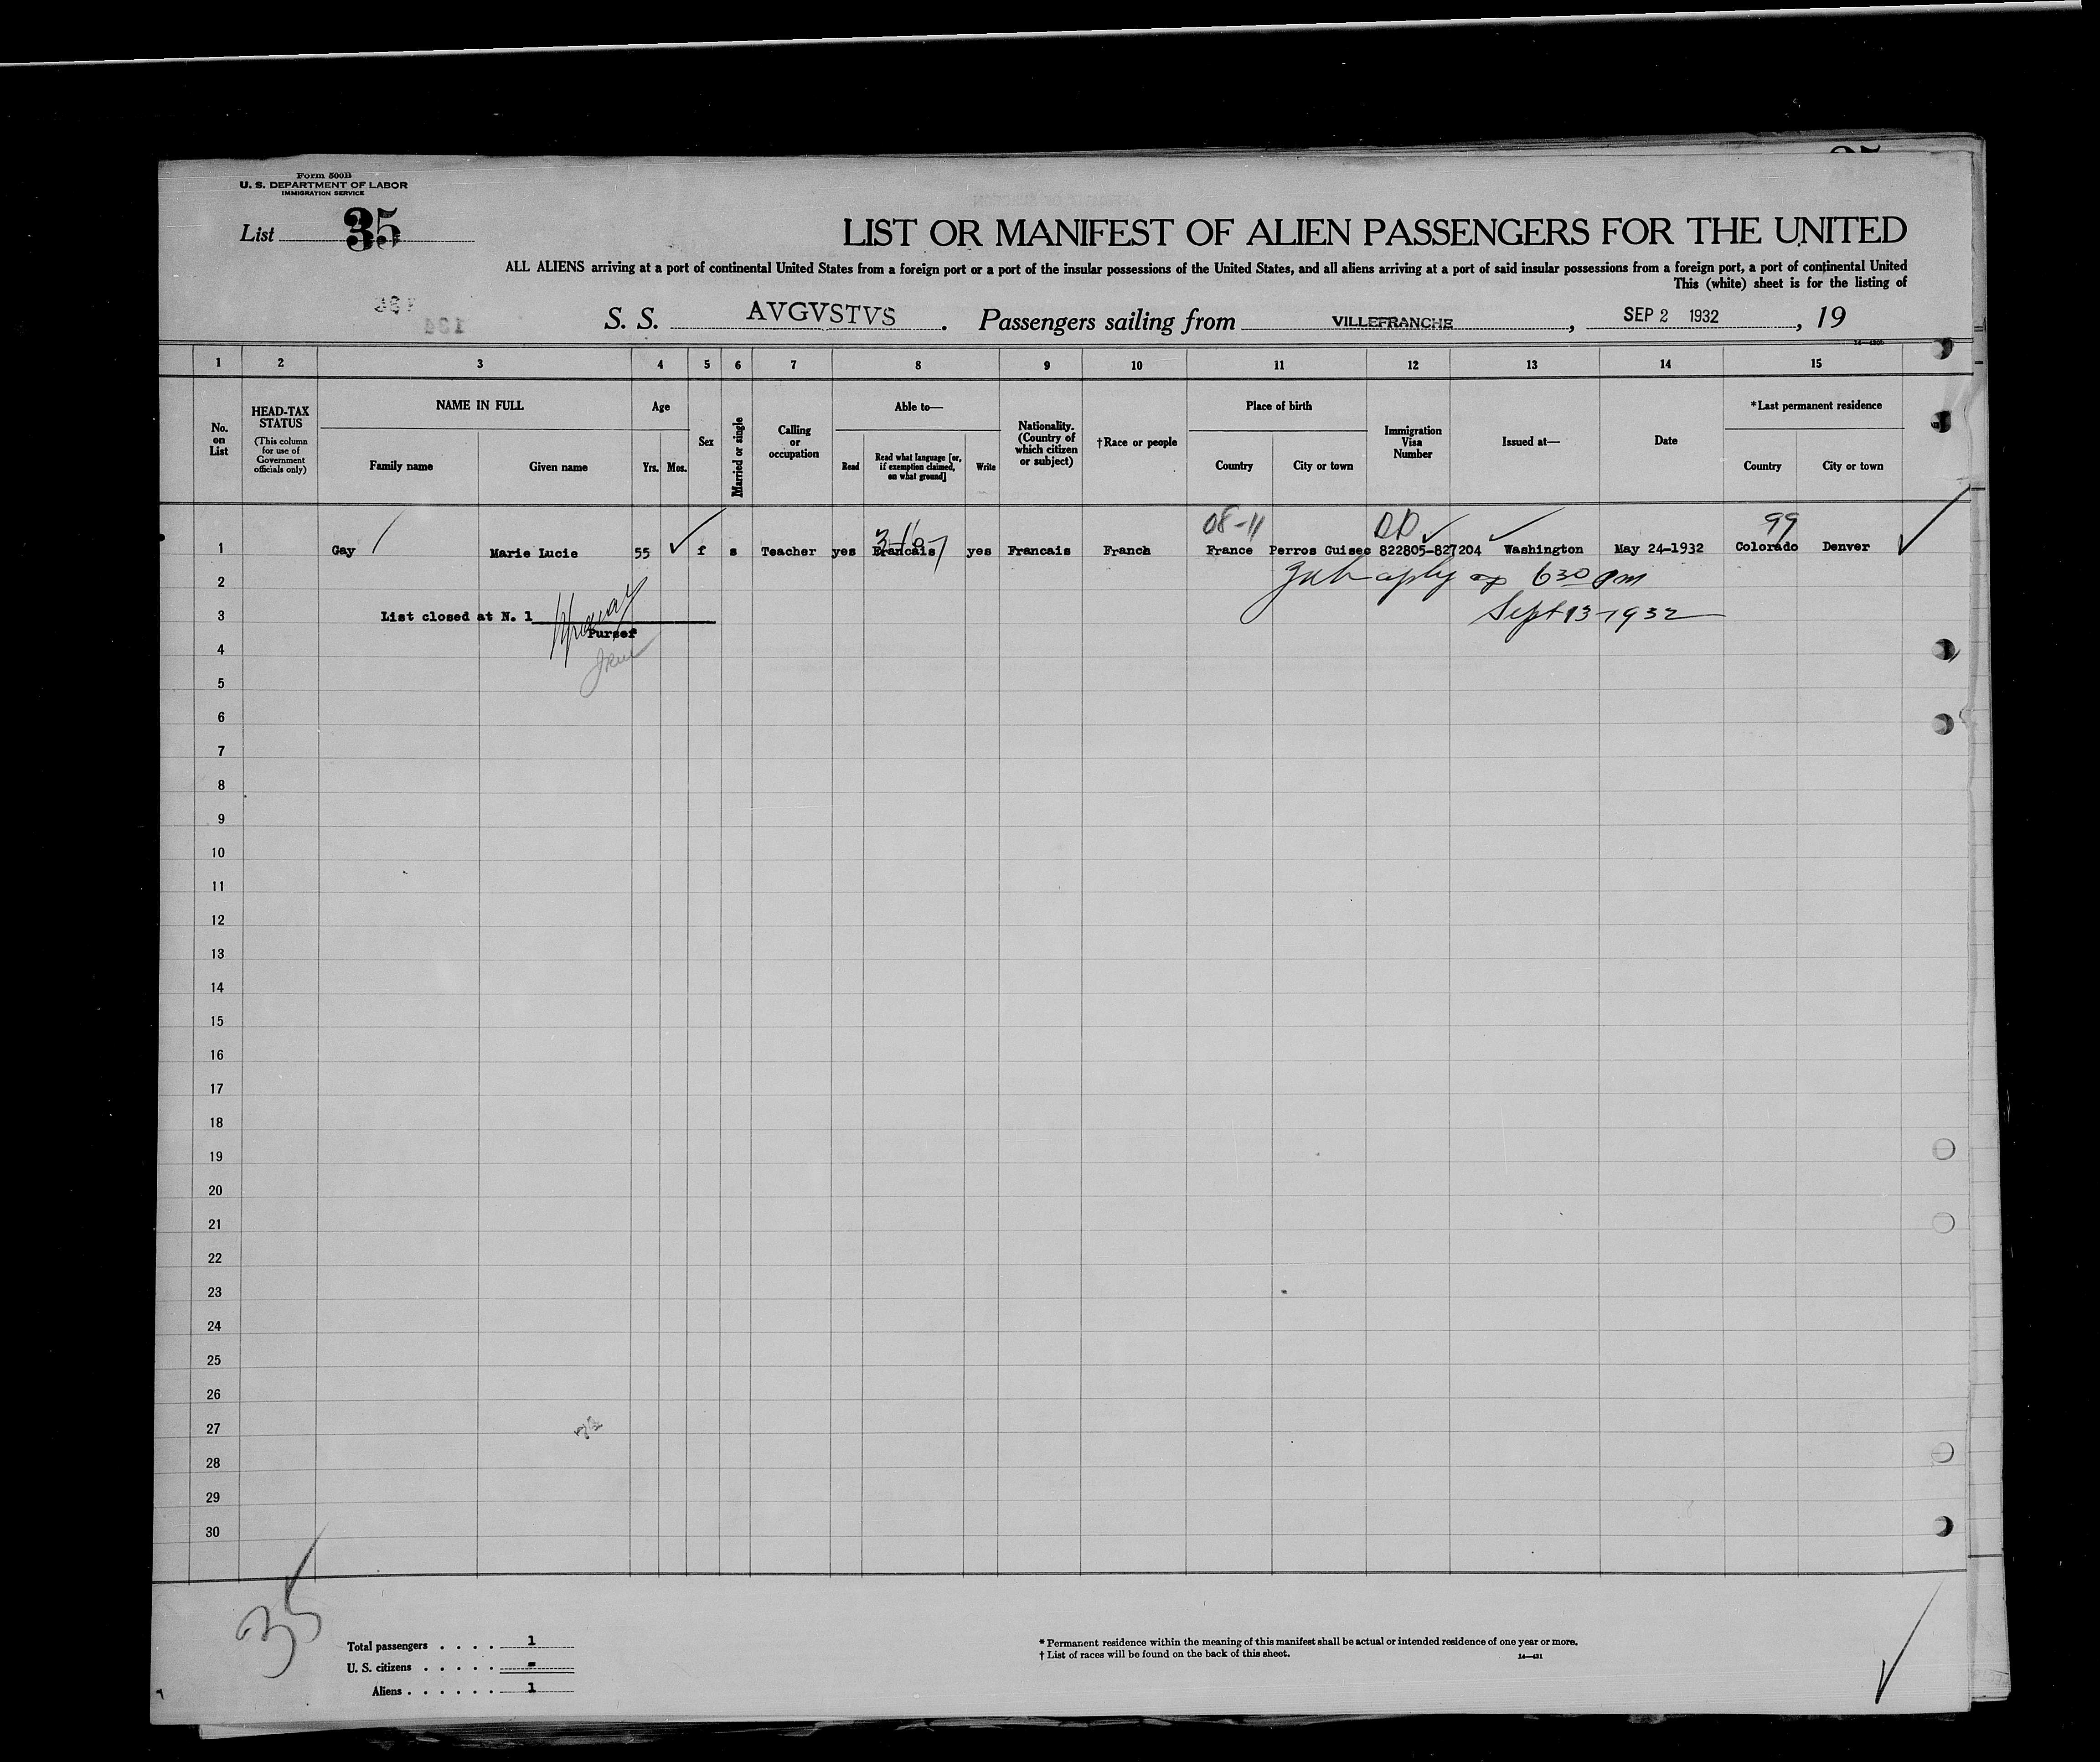 Form 500B
U. S. DEPARTMENT OF LABOR
IMMIGRATION SERVICE
List 35
LIST OR MANIFEST OF ALIEN PASSENGERS FOR THE UNITED
ALL ALIENS arriving at a port of continental United States from a foreign port or a port of the insular possessions of the United States, and all aliens arriving at a port of said insular possessions from a foreign port, a port of continental United
This (white) sheet is for the listing of
S. S. AVGVSTVS. Passengers sailing from VILLEFRANCHE, SEP 2 1932, 19
1 2 3 4 5 6 7 8 9 10 11 12 13 14 15
No. on List
HEAD-TAX STATUS (This column for use of Government officials only)
NAME IN FULL
Family name Given name
Age
Yrs. Mos.
Sex
Married or single
Calling or occupation
Able to—
Read Read what language [or, if exemption claimed, on what ground] Write
Nationality. (Country of which citizen or subject)
†Race or people
Place of birth
Country City or town
Immigration Visa Number
Issued at—
Date
*Last permanent residence
Country City or town
08-11 99
1 Gay Marie Lucie 55 f s Teacher yes Francais yes Francais Franch France Perros Guisec 822805-827204 Washington May 24-1932 Colorado Denver
2 630 pm
3 List closed at N. 1 Sept 13-1932
Purser
4
5
6
7
8
9
10
11
12
13
14
15
16
17
18
19
20
21
22
23
24
25
26
27
28
29
30
35
Total passengers . . . . 1
U. S. citizens . . . . . -
Aliens . . . . . . 1
* Permanent residence within the meaning of this manifest shall be actual or intended residence of one year or more.
† List of races will be found on the back of this sheet.